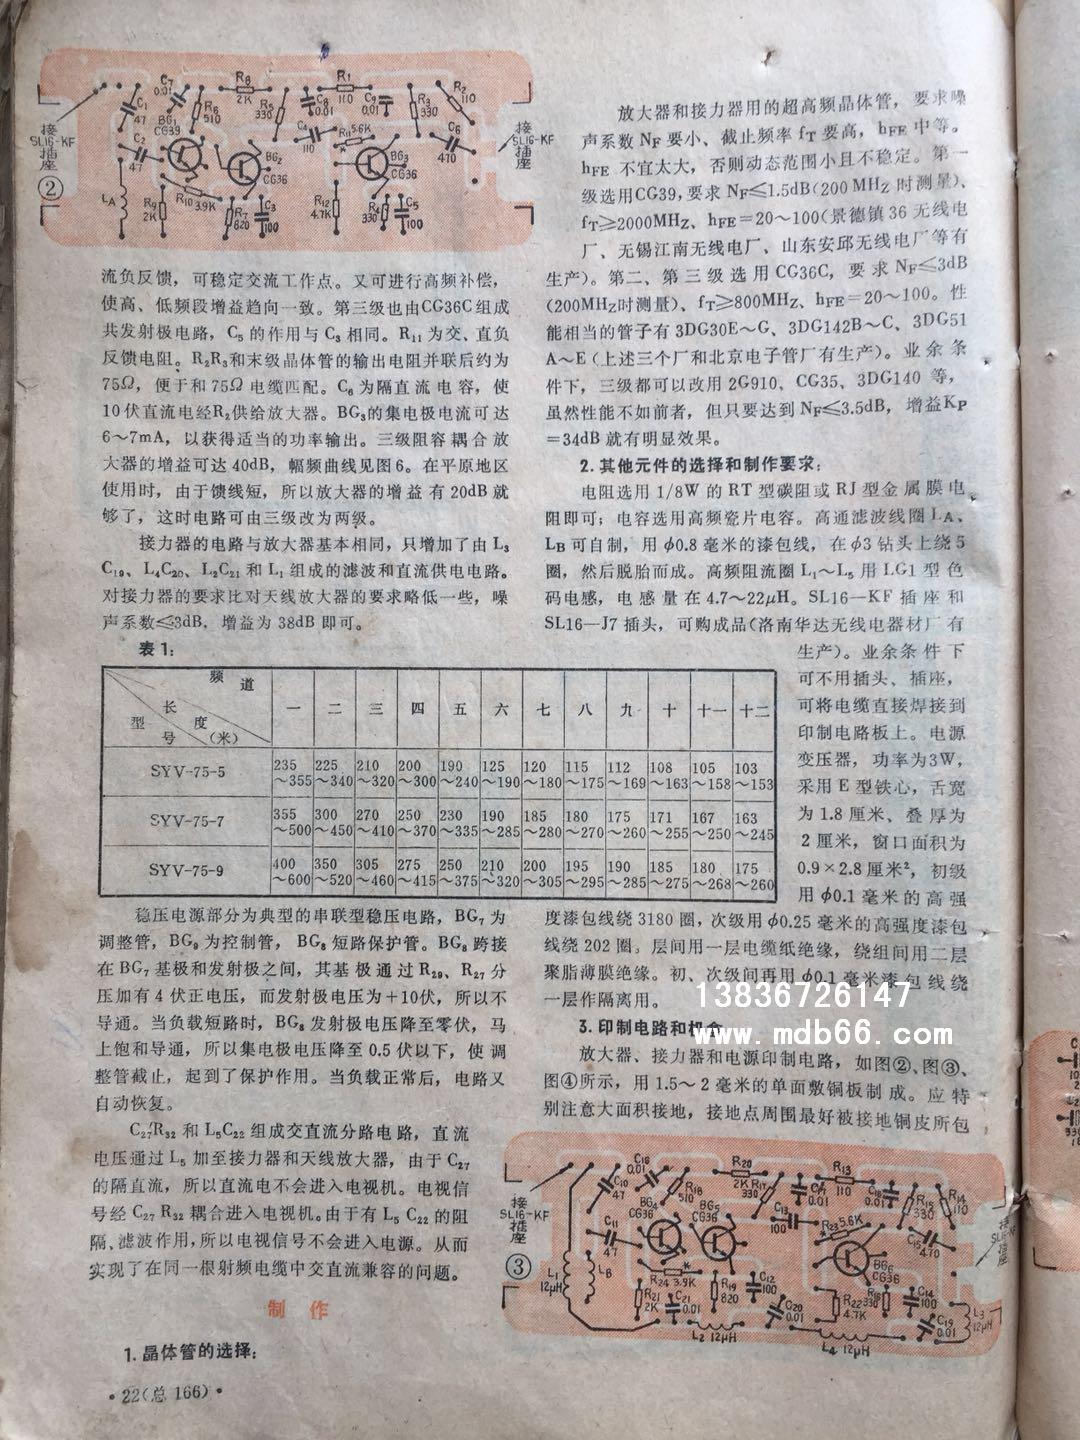 接
SL16-KF
插座
②
C₁
47
C₂
47
C₇
0.01
BG₁
CG39
R₆
510
R₈
2K
R₅
330
BG₂
CG36
C₈
0.01
R₁
110
C₉
0.01
C₄
110
R₁₁ 5.6K
*
BG₃
CG36
R₃
330
R₂
110
C₆
470
L_A
R₉
2K
R₁₀ 3.9K
R₇
820
C₃
100
R₁₂
4.7K
R₄
330
C₅
100
接
SL16-KF
插座
流负反馈，可稳定交流工作点。又可进行高频补偿，
使高、低频段增益趋向一致。第三级也由CG36C组成
共发射极电路，C₅ 的作用与 C₃ 相同。R₁₁ 为交、直负
反馈电阻。R₂R₃和末级晶体管的输出电阻并联后约为
75Ω，便于和75Ω 电缆匹配。C₆ 为隔直流电容，使
10伏直流电经R₂供给放大器。BG₃的集电极电流可达
6～7mA，以获得适当的功率输出。三级阻容耦合放
大器的增益可达 40dB，幅频曲线见图 6。在平原地区
使用时，由于馈线短，所以放大器的增益有 20dB 就
够了，这时电路可由三级改为两级。
接力器的电路与放大器基本相同，只增加了由 L₃
C₁₉、L₄C₂₀、L₂C₂₁ 和 L₁ 组成的滤波和直流供电电路。
对接力器的要求比对天线放大器的要求略低一些，噪
声系数≤3dB，增益为 38dB 即可。
放大器和接力器用的超高频晶体管，要求噪
声系数 N_F 要小、截止频率 f_T 要高，h_FE 中等。
h_FE 不宜太大，否则动态范围小且不稳定。第一
级选用CG39，要求 N_F≤1.5dB(200 MHz 时测量)、
f_T≥2000MHz、h_FE＝20～100(景德镇 36 无线电
厂、无锡江南无线电厂、山东安邱无线电厂等有
生产)。第二、第三级选用 CG36C，要求 N_F≤3dB
(200MHz时测量)、f_T≥800MHz、h_FE＝20～100。性
能相当的管子有 3DG30E～G、3DG142B～C、3DG51
A～E(上述三个厂和北京电子管厂有生产)。业余条
件下，三级都可以改用 2G910、CG35、3DG140 等，
虽然性能不如前者，但只要达到 N_F≤3.5dB，增益K_P
＝34dB 就有明显效果。
2.其他元件的选择和制作要求：
电阻选用 1/8W 的 RT 型碳阻或 RJ 型金属膜电
阻即可；电容选用高频瓷片电容。高通滤波线圈 L_A、
L_B 可自制，用 φ0.8 毫米的漆包线，在 φ3 钻头上绕 5
圈，然后脱胎而成。高频阻流圈 L₁～L₅ 用 LG1 型色
码电感，电感量在 4.7～22μH。SL16—KF 插座和
SL16—J7 插头，可购成品(洛南华达无线电器材厂有
生产)。业余条件下
可不用插头、插座，
可将电缆直接焊接到
印制电路板上。电源
变压器，功率为3W，
采用 E 型铁心，舌宽
为 1.8 厘米、叠厚为
2 厘米，窗口面积为
0.9×2.8 厘米²，初级
用 φ0.1 毫米的高强
表 1：
频道
长度(米)
型号
一 二 三 四 五 六 七 八 九 十 十一 十二
SYV-75-5 235～355 225～340 210～320 200～300 190～240 125～190 120～180 115～175 112～169 108～163 105～158 103～153
SYV-75-7 355～500 300～450 270～410 250～370 230～335 190～285 185～280 180～270 175～260 171～255 167～250 163～245
SYV-75-9 400～600 350～520 305～460 275～415 250～375 210～320 200～305 195～295 190～285 185～275 180～268 175～260
稳压电源部分为典型的串联型稳压电路，BG₇ 为
调整管，BG₉ 为控制管，BG₈ 短路保护管。BG₈ 跨接
在 BG₇ 基极和发射极之间，其基极通过 R₂₉、R₂₇ 分
压加有 4 伏正电压，而发射极电压为＋10伏，所以不
导通。当负载短路时，BG₈ 发射极电压降至零伏，马
上饱和导通，所以集电极电压降至 0.5 伏以下，使调
整管截止，起到了保护作用。当负载正常后，电路又
自动恢复。
C₂₇R₃₂ 和 L₅C₂₂ 组成交直流分路电路，直流
电压通过 L₅ 加至接力器和天线放大器，由于 C₂₇
的隔直流，所以直流电不会进入电视机。电视信
号经 C₂₇ R₃₂ 耦合进入电视机。由于有 L₅ C₂₂ 的阻
隔、滤波作用，所以电视信号不会进入电源。从而
实现了在同一根射频电缆中交直流兼容的问题。
制作
1.晶体管的选择：
度漆包线绕 3180 圈，次级用 φ0.25 毫米的高强度漆包
线绕 202 圈。层间用一层电缆纸绝缘，绕组间用二层
聚脂薄膜绝缘。初、次级间再用 φ0.1 毫米漆包线绕
一层作隔离用。
13836726147
3.印制电路和机
www.mdb66.com
放大器、接力器和电源印制电路，如图②、图③、
图④所示，用 1.5～2 毫米的单面敷铜板制成。应特
别注意大面积接地，接地点周围最好被接地铜皮所包
接
SL16-KF
插座
③
C₁₀
47
C₁₁
47
C₁₆
0.01
BG₄
CG36
R₁₈
510
BG₅
CG36
R₂₀
2K
R₁₇
330
C₁₇
0.01
R₁₃
110
C₁₈
0.01
C₁₃
100
R₂₃ 5.6K
*
R₁₅
330
R₁₄
110
C₁₅
470
BG₆
CG36
L₁
12μH
L_B
R₂₄ 3.9K
*
R₂₁
2K
C₂₁
0.01
R₁₉
820
C₁₂
100
L₂ 12μH
C₂₀
0.01
R₂₂
4.7K
R₁₆
330
C₁₄
100
C₁₉
0.01
L₃
12μH
L₄ 12μH
接
插座
·22(总 166)·